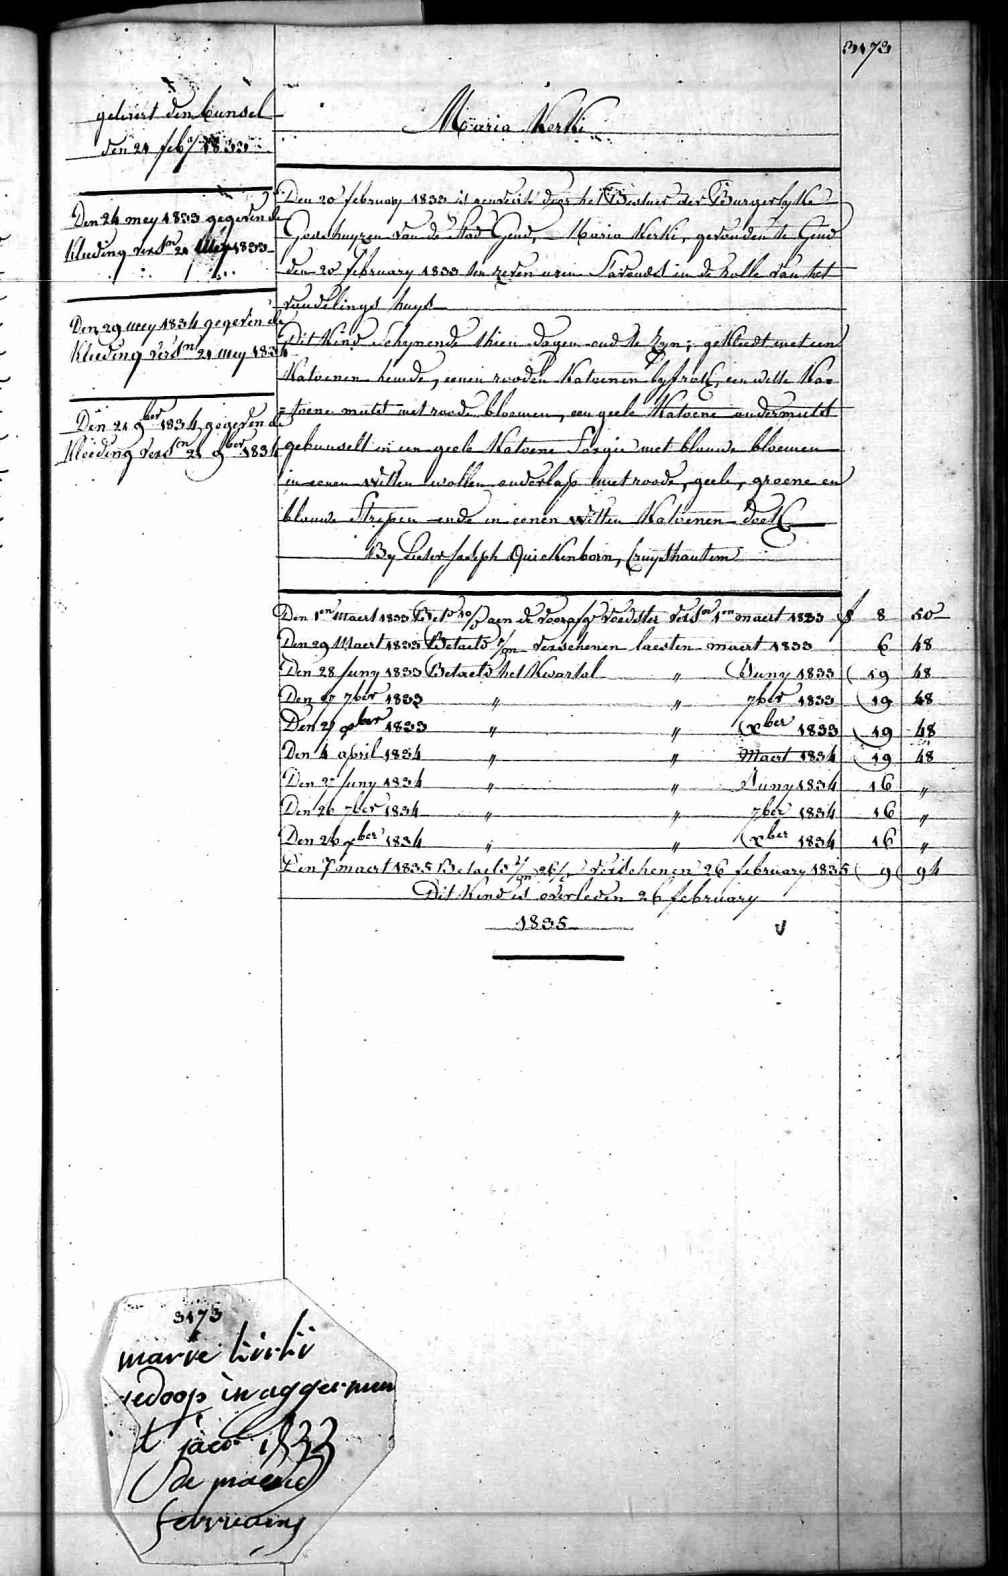 3173
gelivert den bunsel
den 21 feby 1833
Maria Kerki
Den 24 mey 1833 gegeven de
Kleeding versn 21 Mey 1833
Den 29 mey 1834 gegeven de
Kleeding versn 21 mey 1834
Den 21 9ber 1834 gegeven de
Kleeding versen 21 9ber 1834
Den 20 february 1833 is door het Bestuer der Burgerlyke
Godshuyzen van de stad Gend, Maria Kerki, gevonden te Gend
den 20 february 1833 ten zeven uren s'avonds in de rolle van het
vondelings huys
Dit Kind schynende thien dagen oud te zyn; gekleedt met een
Katoenen hemde, eenen rooden Katoenen lyfrok, een witte Ka-
=toene mutst met roode bloemen, een geele Katoene ondermutst
gebunselt in een geele Katoene Sargie met blauwe bloemen
in eenen witten wollen onderlap met roode, geele, groene en
blauwe strepen ende in eenen witten Katoenen doek
By Pieter Joseph Quickenborn, Cruyshautem
Den 1en Maert 1833 aen de voedster versn 1en maert 1833 f 8 50
Den 29 Maert 1833 Betaelt verschenen laesten maert 1833 6 48
Den 28 Juny 1833 Betaelt het Kwartal " Juny 1833 19 48
Den 27 7ber 1833 " " 7ber 1833 19 48
Den 27 xber 1833 " " xber 1833 19 48
Den 4 april 1834 " " Maert 1834 19 48
Den 27 Juny 1834 " " Juny 1834 16 "
Den 26 7ber 1834 " " 7ber 1834 16 "
Den 26 xber 1834 " " xber 1834 16 "
Den 7 maert 1835 Betaelt verschenen 26 february 1835 9 94
Dit Kind is overleden 26 february
1835
3173
marie kirki
gedoop in
t jacob 1833
de maend